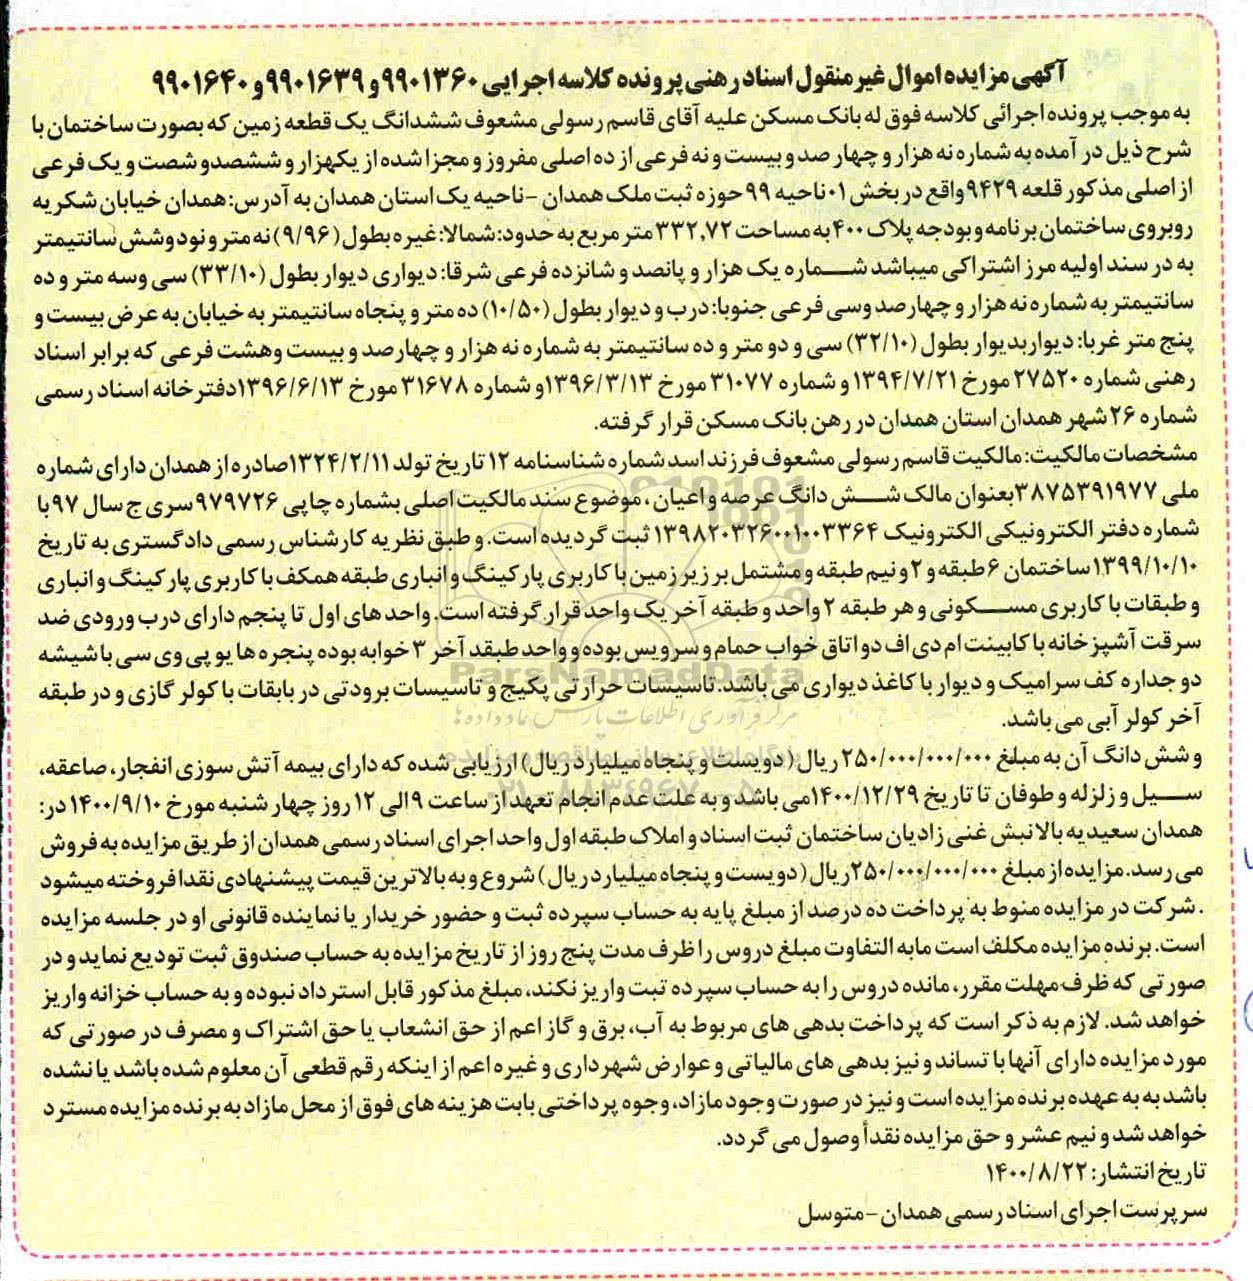 آگهی مزایده اموال غیر منقول اسناد رهنی پرونده کلاسه اجرایی ۹۹۰۱۳۶۰ و ۹۹۰۱۶۳۹ و ۹۹۰۱۶۴۰
به موجب پرونده اجرائی کلاسه فوق له بانک مسکن علیه آقای قاسم رسولی مشعوف ششدانگ یک قطعه زمین که بصورت ساختمان با
شرح ذیل در آمده به شماره نه هزار و چهار صد و بیست و نه فرعی از ده اصلی مفروز و مجزا شده از یکهزار و ششصد و شصت و یک فرعی
از اصلی مذکور قلعه ۹۴۲۹ واقع در بخش ۰۱ ناحیه ۹۹ حوزه ثبت ملک همدان - ناحیه یک استان همدان به آدرس: همدان خیابان شکریه
روبروی ساختمان برنامه و بودجه پلاک ۴۰۰ به مساحت ۳۳۲,۷۲ متر مربع به حدود: شمالا: غیره بطول (۹/۹۶) نه متر و نود و شش سانتیمتر
به در سند اولیه مرز اشتراکی میباشد شماره یک هزار و پانصد و شانزده فرعی شرقا: دیواری دیوار بطول (۳۳/۱۰) سی وسه متر و ده
سانتیمتر به شماره نه هزار و چهار صد وسی فرعی جنوبا: درب و دیوار بطول (۱۰/۵۰) ده متر و پنجاه سانتیمتر به خیابان به عرض بیست و
پنج متر غربا: دیوار بدیوار بطول (۳۲/۱۰) سی و دو متر و ده سانتیمتر به شماره نه هزار و چهارصد و بیست وهشت فرعی که برابر اسناد
رهنی شماره ۲۷۵۲۰ مورخ ۱۳۹۴/۷/۲۱ و شماره ۳۱۰۷۷ مورخ ۱۳۹۶/۳/۱۳ و شماره ۳۱۶۷۸ مورخ ۱۳۹۶/۶/۱۳ دفترخانه اسناد رسمی
شماره ۲۶ شهر همدان استان همدان در رهن بانک مسکن قرار گرفته.
مشخصات مالکیت: مالکیت قاسم رسولی مشعوف فرزند اسد شماره شناسنامه ۱۲ تاریخ تولد ۱۳۲۴/۲/۱۱ صادره از همدان دارای شماره
ملی ۳۸۷۵۳۹۱۹۷۷ بعنوان مالک شش دانگ عرصه و اعیان، موضوع سند مالکیت اصلی بشماره چاپی ۹۷۹۷۲۶ سری ج سال ۹۷ با
شماره دفتر الکترونیکی الکترونیک ۱۳۹۸۲۰۳۲۶۰۰۱۰۰۳۳۶۴ ثبت گردیده است. و طبق نظریه کارشناس رسمی دادگستری به تاریخ
۱۳۹۹/۱۰/۱۰ ساختمان ۶ طبقه و ۲ و نیم طبقه و مشتمل بر زیر زمین با کاربری پارکینگ و انباری طبقه همکف با کاربری پارکینگ و انباری
و طبقات با کاربری مسکونی و هر طبقه ۲ واحد و طبقه آخر یک واحد قرار گرفته است. واحد های اول تا پنجم دارای درب ورودی ضد
سرقت آشپزخانه با کابینت ام دی اف دو اتاق خواب حمام و سرویس بوده و واحد طبقد آخر ۳ خوابه بوده پنجره ها یو پی وی سی با شیشه
دو جداره کف سرامیک و دیوار با کاغذ دیواری می باشد. تاسیسات حرارتی پکیج و تاسیسات برودتی در بابقات با کولر گازی و در طبقه
آخر کولر آبی می باشد.
و شش دانگ آن به مبلغ ۲۵۰/۰۰۰/۰۰۰/۰۰۰ ریال (دویست و پنجاه میلیارد ریال) ارزیابی شده که دارای بیمه آتش سوزی انفجار، صاعقه،
سیل و زلزله و طوفان تا تاریخ ۱۴۰۰/۱۲/۲۹ می باشد و به علت عدم انجام تعهد از ساعت ۹ الی ۱۲ روز چهار شنبه مورخ ۱۴۰۰/۹/۱۰ در:
همدان سعیدیه بالا نبش غنی زادیان ساختمان ثبت اسناد و املاک طبقه اول واحد اجرای اسناد رسمی همدان از طریق مزایده به فروش
می رسد. مزایده از مبلغ ۲۵۰/۰۰۰/۰۰۰/۰۰۰ ریال (دویست و پنجاه میلیارد ریال) شروع و به بالاترین قیمت پیشنهادی نقدا فروخته میشود
. شرکت در مزایده منوط به پرداخت ده درصد از مبلغ پایه به حساب سپرده ثبت و حضور خریدار یا نماینده قانونی او در جلسه مزایده
است. برنده مزایده مکلف است مابه التفاوت مبلغ دروس را ظرف مدت پنج روز از تاریخ مزایده به حساب صندوق ثبت تودیع نماید و در
صورتی که ظرف مهلت مقرر، مانده دروس را به حساب سپرده ثبت واریز نکند، مبلغ مذکور قابل استرداد نبوده و به حساب خزانه واریز
خواهد شد. لازم به ذکر است که پرداخت بدهی های مربوط به آب، برق و گاز اعم از حق انشعاب یا حق اشتراک و مصرف در صورتی که
مورد مزایده دارای آنها با تساند و نیز بدهی های مالیاتی و عوارض شهرداری و غیره اعم از اینکه رقم قطعی آن معلوم شده باشد یا نشده
باشد به به عهده برنده مزایده است و نیز در صورت وجود مازاد، وجوه پرداختی بابت هزینه های فوق از محل مازاد به برنده مزایده مسترد
خواهد شد و نیم عشر و حق مزایده نقداً وصول می گردد.
تاریخ انتشار: ۱۴۰۰/۸/۲۲
سرپرست اجرای اسناد رسمی همدان - متوسل
ParsNamadData